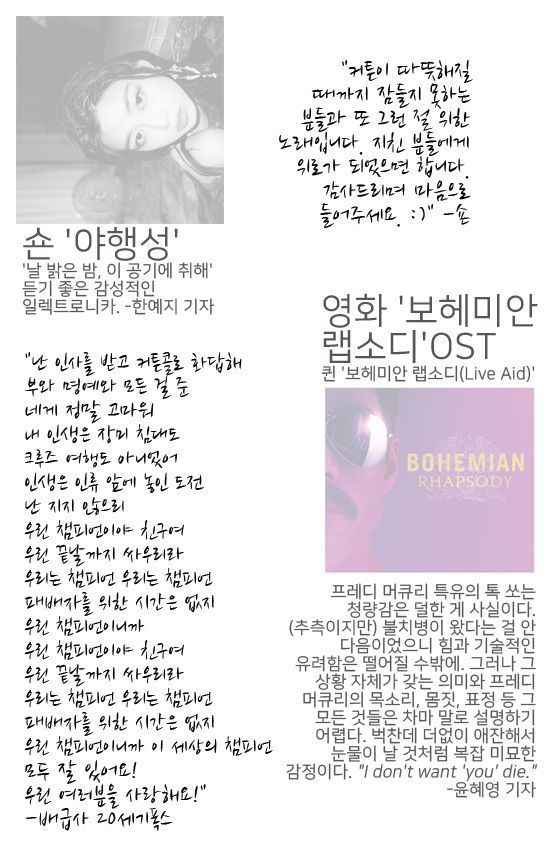 숀 '야행성'
'날 밝은 밤, 이 공기에 취해'
듣기 좋은 감성적인
일렉트로니카. -한예지 기자
"커튼이 따뜻해질
때까지 잠들지 못하는
분들과 또 그런 절 위한
노래입니다. 지친 분들에게
위로가 되었으면 합니다.
감사드리며 마음으로
들어주세요. :)" -숀
영화 '보헤미안
랩소디'OST
퀸 '보헤미안 랩소디(Live Aid)'
BOHEMIAN
RHAPSODY
프레디 머큐리 특유의 톡 쏘는
청량감은 덜한 게 사실이다.
(추측이지만) 불치병이 왔다는 걸 안
다음이었으니 힘과 기술적인
유려함은 떨어질 수밖에. 그러나 그
상황 자체가 갖는 의미와 프레디
머큐리의 목소리, 몸짓, 표정 등 그
모든 것들은 차마 말로 설명하기
어렵다. 벅찬데 더없이 애잔해서
눈물이 날 것처럼 복잡 미묘한
감정이다. "I don't want 'you' die."
-윤혜영 기자
"난 인사를 받고 커튼콜로 화답해
부와 명예와 모든 걸 준
네게 정말 고마워
내 인생은 장미 침대도
크루즈 여행도 아니었어
인생은 인류 앞에 놓인 도전
난 지지 않으리
우린 챔피언이야 친구여
우린 끝날까지 싸우리라
우리는 챔피언 우리는 챔피언
패배자를 위한 시간은 없지
우린 챔피언이니까
우린 챔피언이야 친구여
우린 끝날까지 싸우리라
우리는 챔피언 우리는 챔피언
패배자를 위한 시간은 없지
우린 챔피언이니까 이 세상의 챔피언
모두 잘 있어요!
우린 여러분을 사랑해요!"
-배급사 20세기폭스